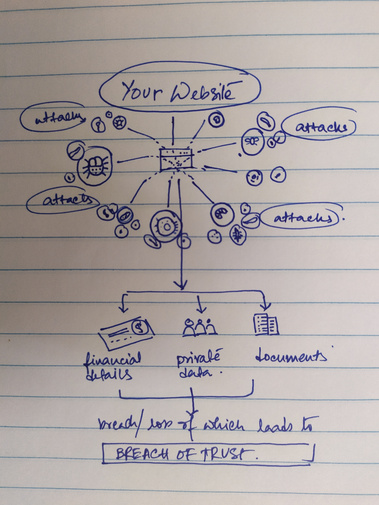 Your Website
attacks
attacks
attacks
attacks.
financial
details
private
data.
documents
breach/loss of which leads to
BREACH OF TRUST.